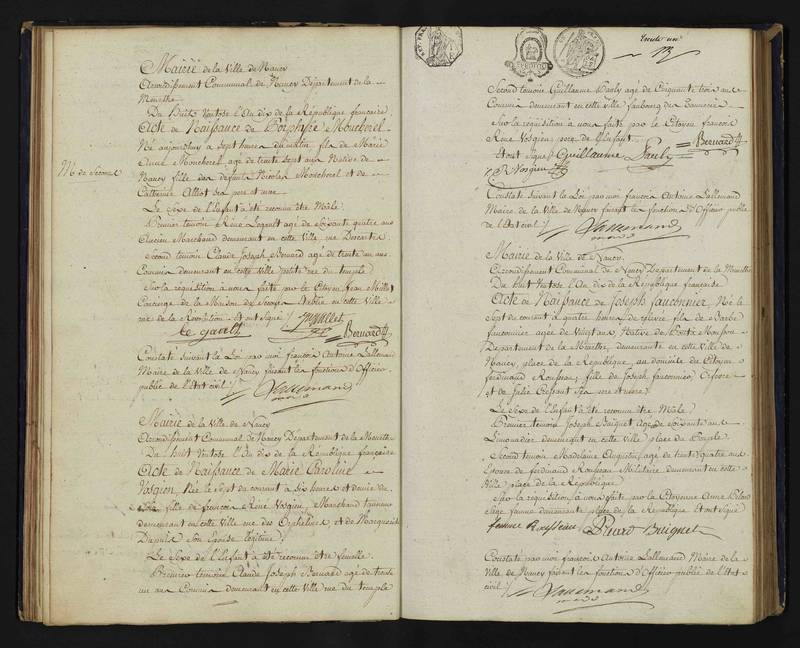 Mairie de la Ville de Nancy
Arrondissement Communal de Nancy Département de la
Meurthe
Du Huit Ventose l'An dix de la République française
Acte de Naissance de Moucherel
Né aujourdhuy à sept heures du matin fils de Marie
Anne Moucherel agée de trente sept ans Native de
Nancy fille des defunts Nicolas Moucherel et de
Catherine Alliot ses pere et mere
M. de Secours
Le Sexe de l'Enfant à été reconnu être Mâle.
Premier temoin René Legault agé de Soixante quatre ans
Ancien Marchand demeurant en cette Ville rue Descartes
Second temoin Claude Joseph Bernard agé de trente un ans
Commis demeurant en cette Ville petite rue du temple
Sur la réquisition à nous faite par le Citoyen Jean Mullet
Concierge de la Maison de Secours établie en cette Ville
rue de la Révolution et ont Signé
le gault Mullet Bernard
Constaté Suivant la Loi par moi françois Antoine Lallemand
Maire de la Ville de Nancy faisant les fonctions d'Officier
public de l'Etat civil
Lallemand
Mairie de la Ville de Nancy
Arrondissement Communal de Nancy Département de la Meurthe
Du huit Ventose l'An dix de la République française
Acte de Naissance de Marie Caroline
Vosgien, Née le Sept du courant à Six heures et demie du
Soir fille de françois René Vosgien, Marchand tanneur
demeurant en cette Ville rue des Orphelines, et de Marguerite
Dupuis Son Epouse légitime
Le Sexe de l'Enfant à été reconnu être femelle.
Premier temoin, Claude Joseph Bernard agé de trente
un ans Commis demeurant en cette Ville rue du temple
Second temoin Guillaume Pauly agé de Cinquante trois ans
Commis demeurant en cette Ville faubourg des
Sur la réquisition à nous faite par le Citoyen françois
René Vosgien, pere de l'Enfant
et ont Signé Guillaume Pauly Bernard
R Vosgien
Constaté Suivant la Loi par moi françois Antoine Lallemand
Maire de la Ville de Nancy faisant les fonctions d'Officier public
de l'Etat civil
Lallemand
Mairie de la Ville de Nancy.
Arrondissement Communal de Nancy Département de la Meurthe
Du huit Ventose l'An dix de la République française
Acte de Naissance de Joseph fauconnier, Né le
Sept du courant à quatre heures de relevée fils de Barbe
fauconnier agée de Vingt ans, Native de Pont a Mousson
Département de la Meurthe, demeurante en cette Ville de
Nancy, place de la République, au domicile du Citoyen
ferdinand Rousseau, fille de Joseph fauconnier,
et de Julie Ses pere et mere
Le Sexe de l'Enfant à été reconnu être Mâle.
Premier temoin Joseph Buignet Agé de Soixante ans
Limonadier demeurant en cette Ville place du Peuple
Second temoin Madelaine Augustin, agée de trente quatre ans
Epouse de ferdinand Rousseau Militaire demeurant en cette
Ville place de la République
Sur la réquisition à nous faite par la Citoyenne Anne
Sage femme demeurante place de la République et ont Signé
femme Rousseau Buignet
Constaté par moi françois Antoine Lallemand Maire de la
Ville de Nancy faisant les fonctions d'Officier public de l'Etat
civil
Lallemand